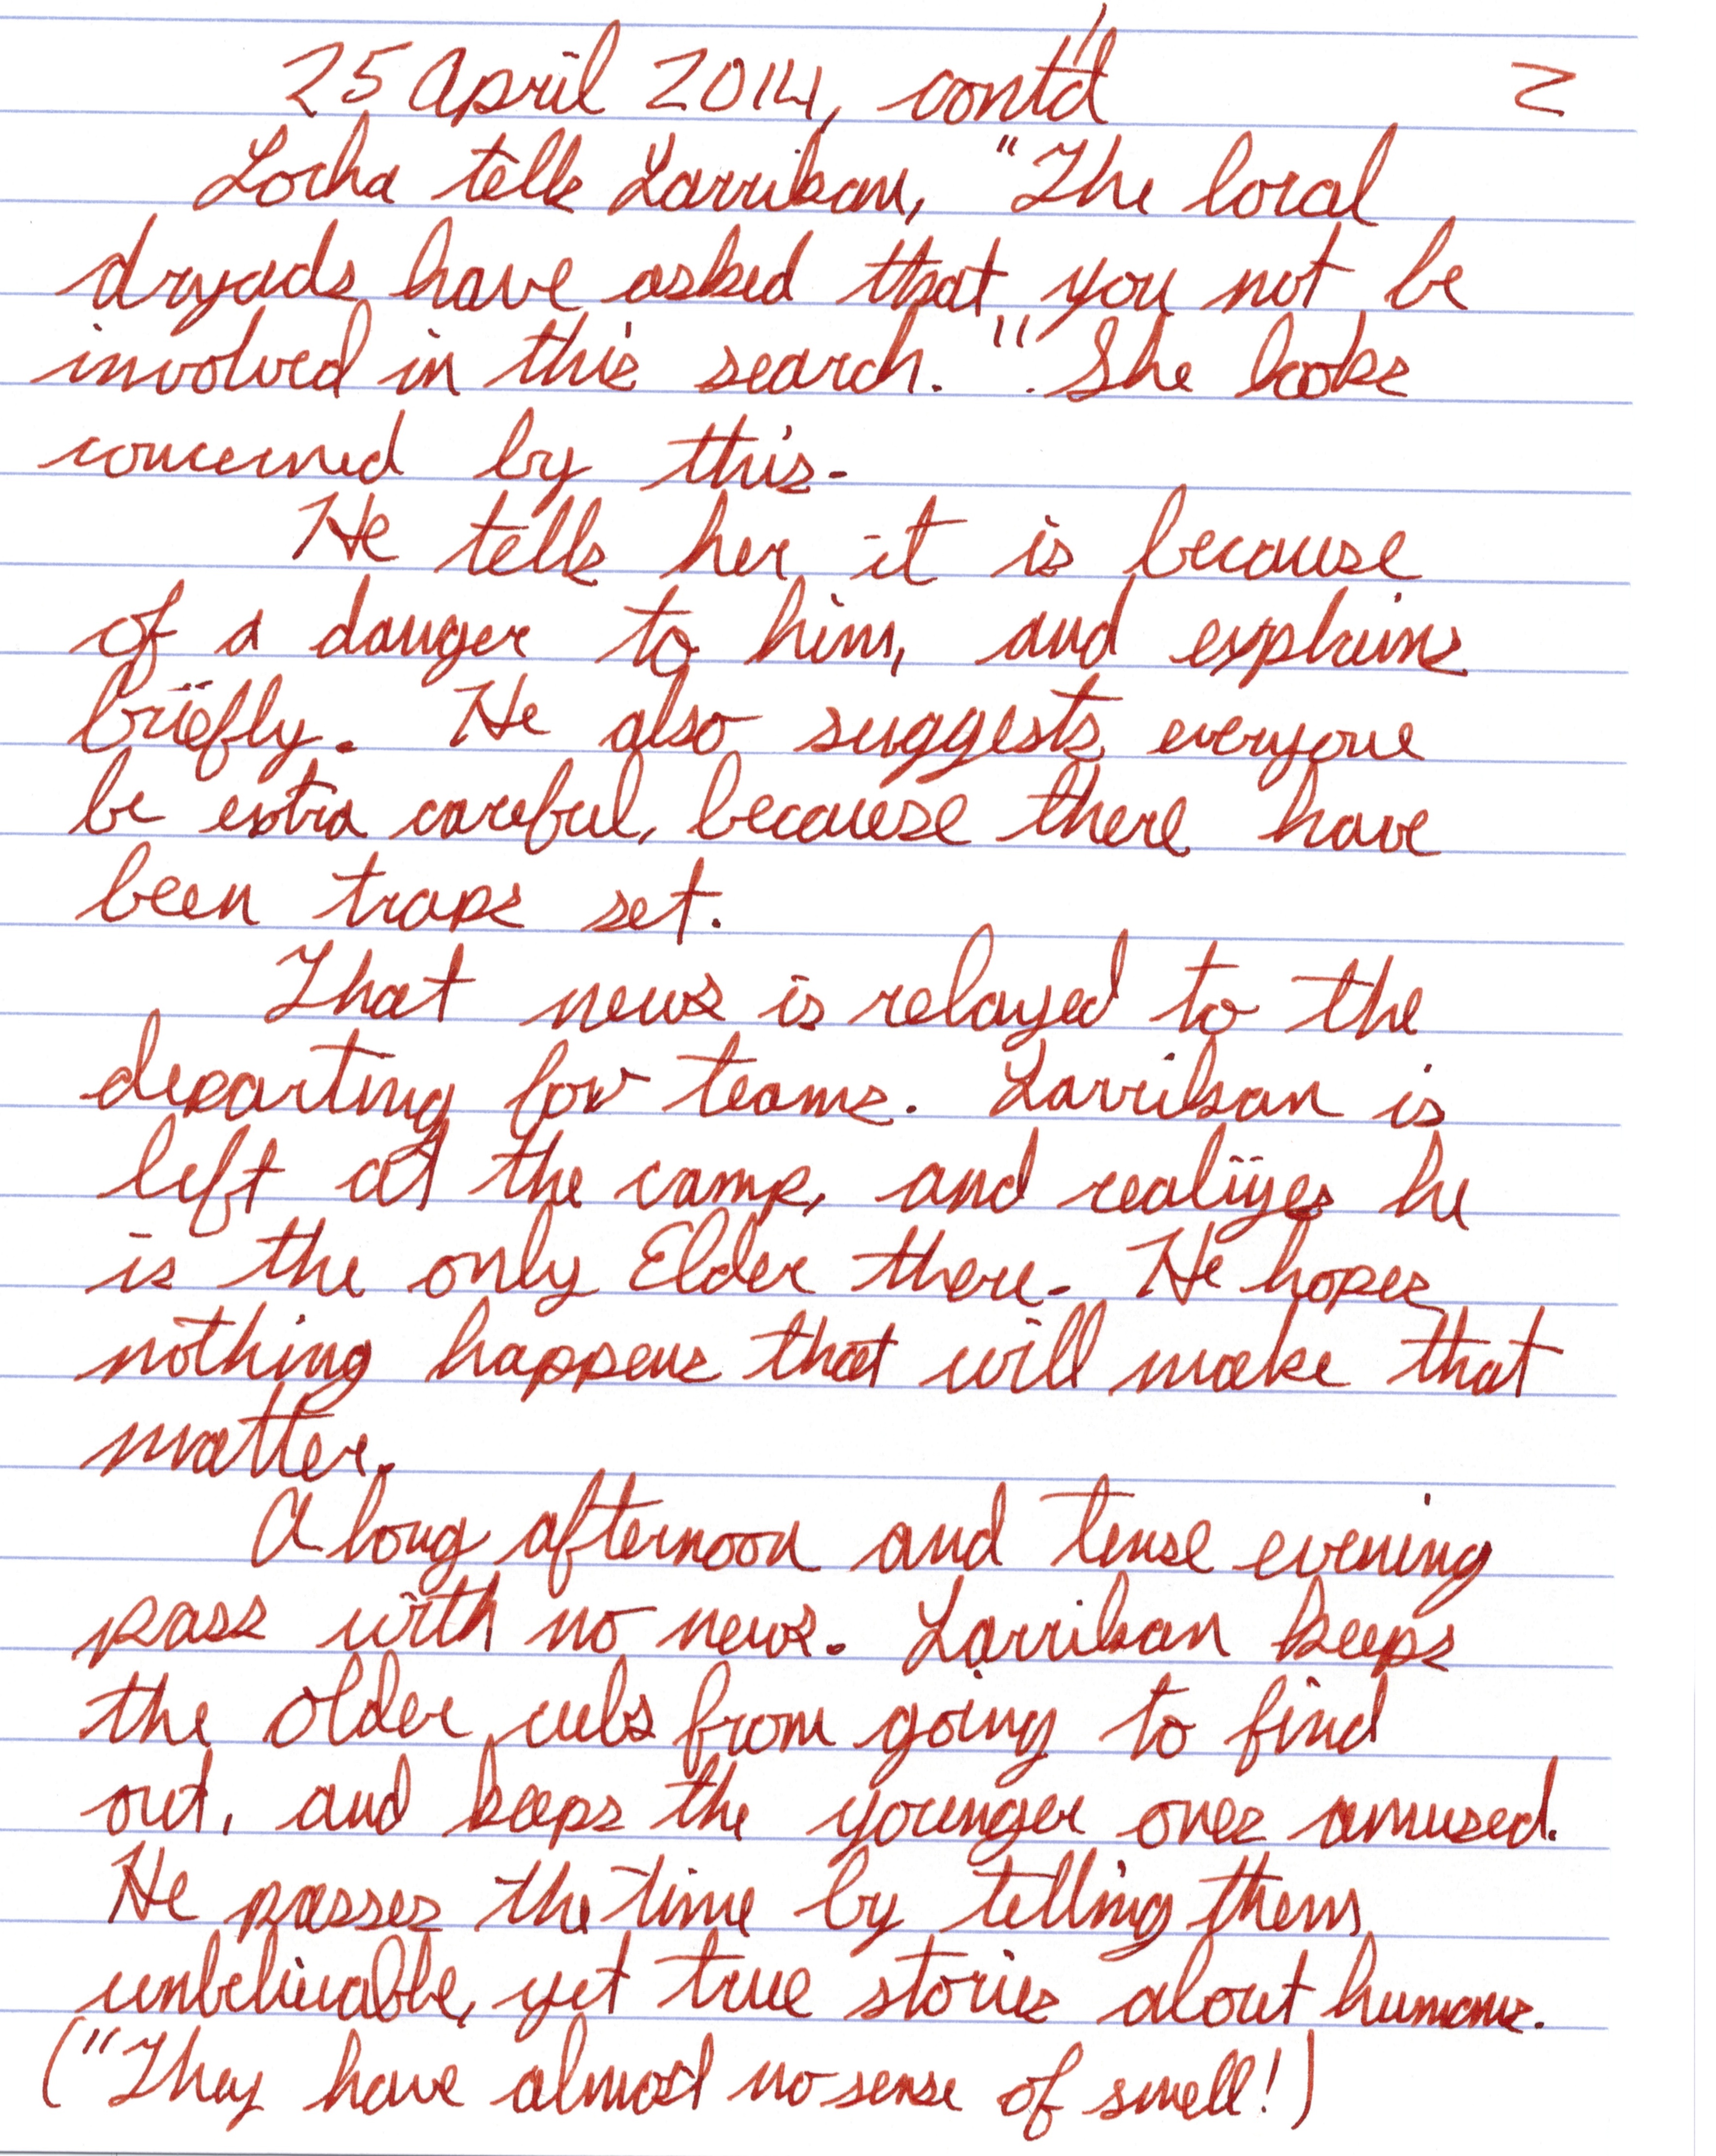 25 April 2014, cont'd 2
Locha tells Larriban, "The local
dryads have asked that you not be
involved in this search." She looks
concerned by this.
He tells her it is because
of a danger to him, and explains
briefly. He also suggests everyone
be extra careful, because there have
been traps set.
That news is relayed to the
departing four teams. Larriban is
left at the camp, and realizes he
is the only Elder there. He hopes
nothing happens that will make that
matter.
A long afternoon and tense evening
pass with no news. Larriban keeps
the older cubs from going to find
out, and keeps the younger ones amused.
He passes the time by telling them
unbelievable, yet true stories about humans.
("They have almost no sense of smell!)